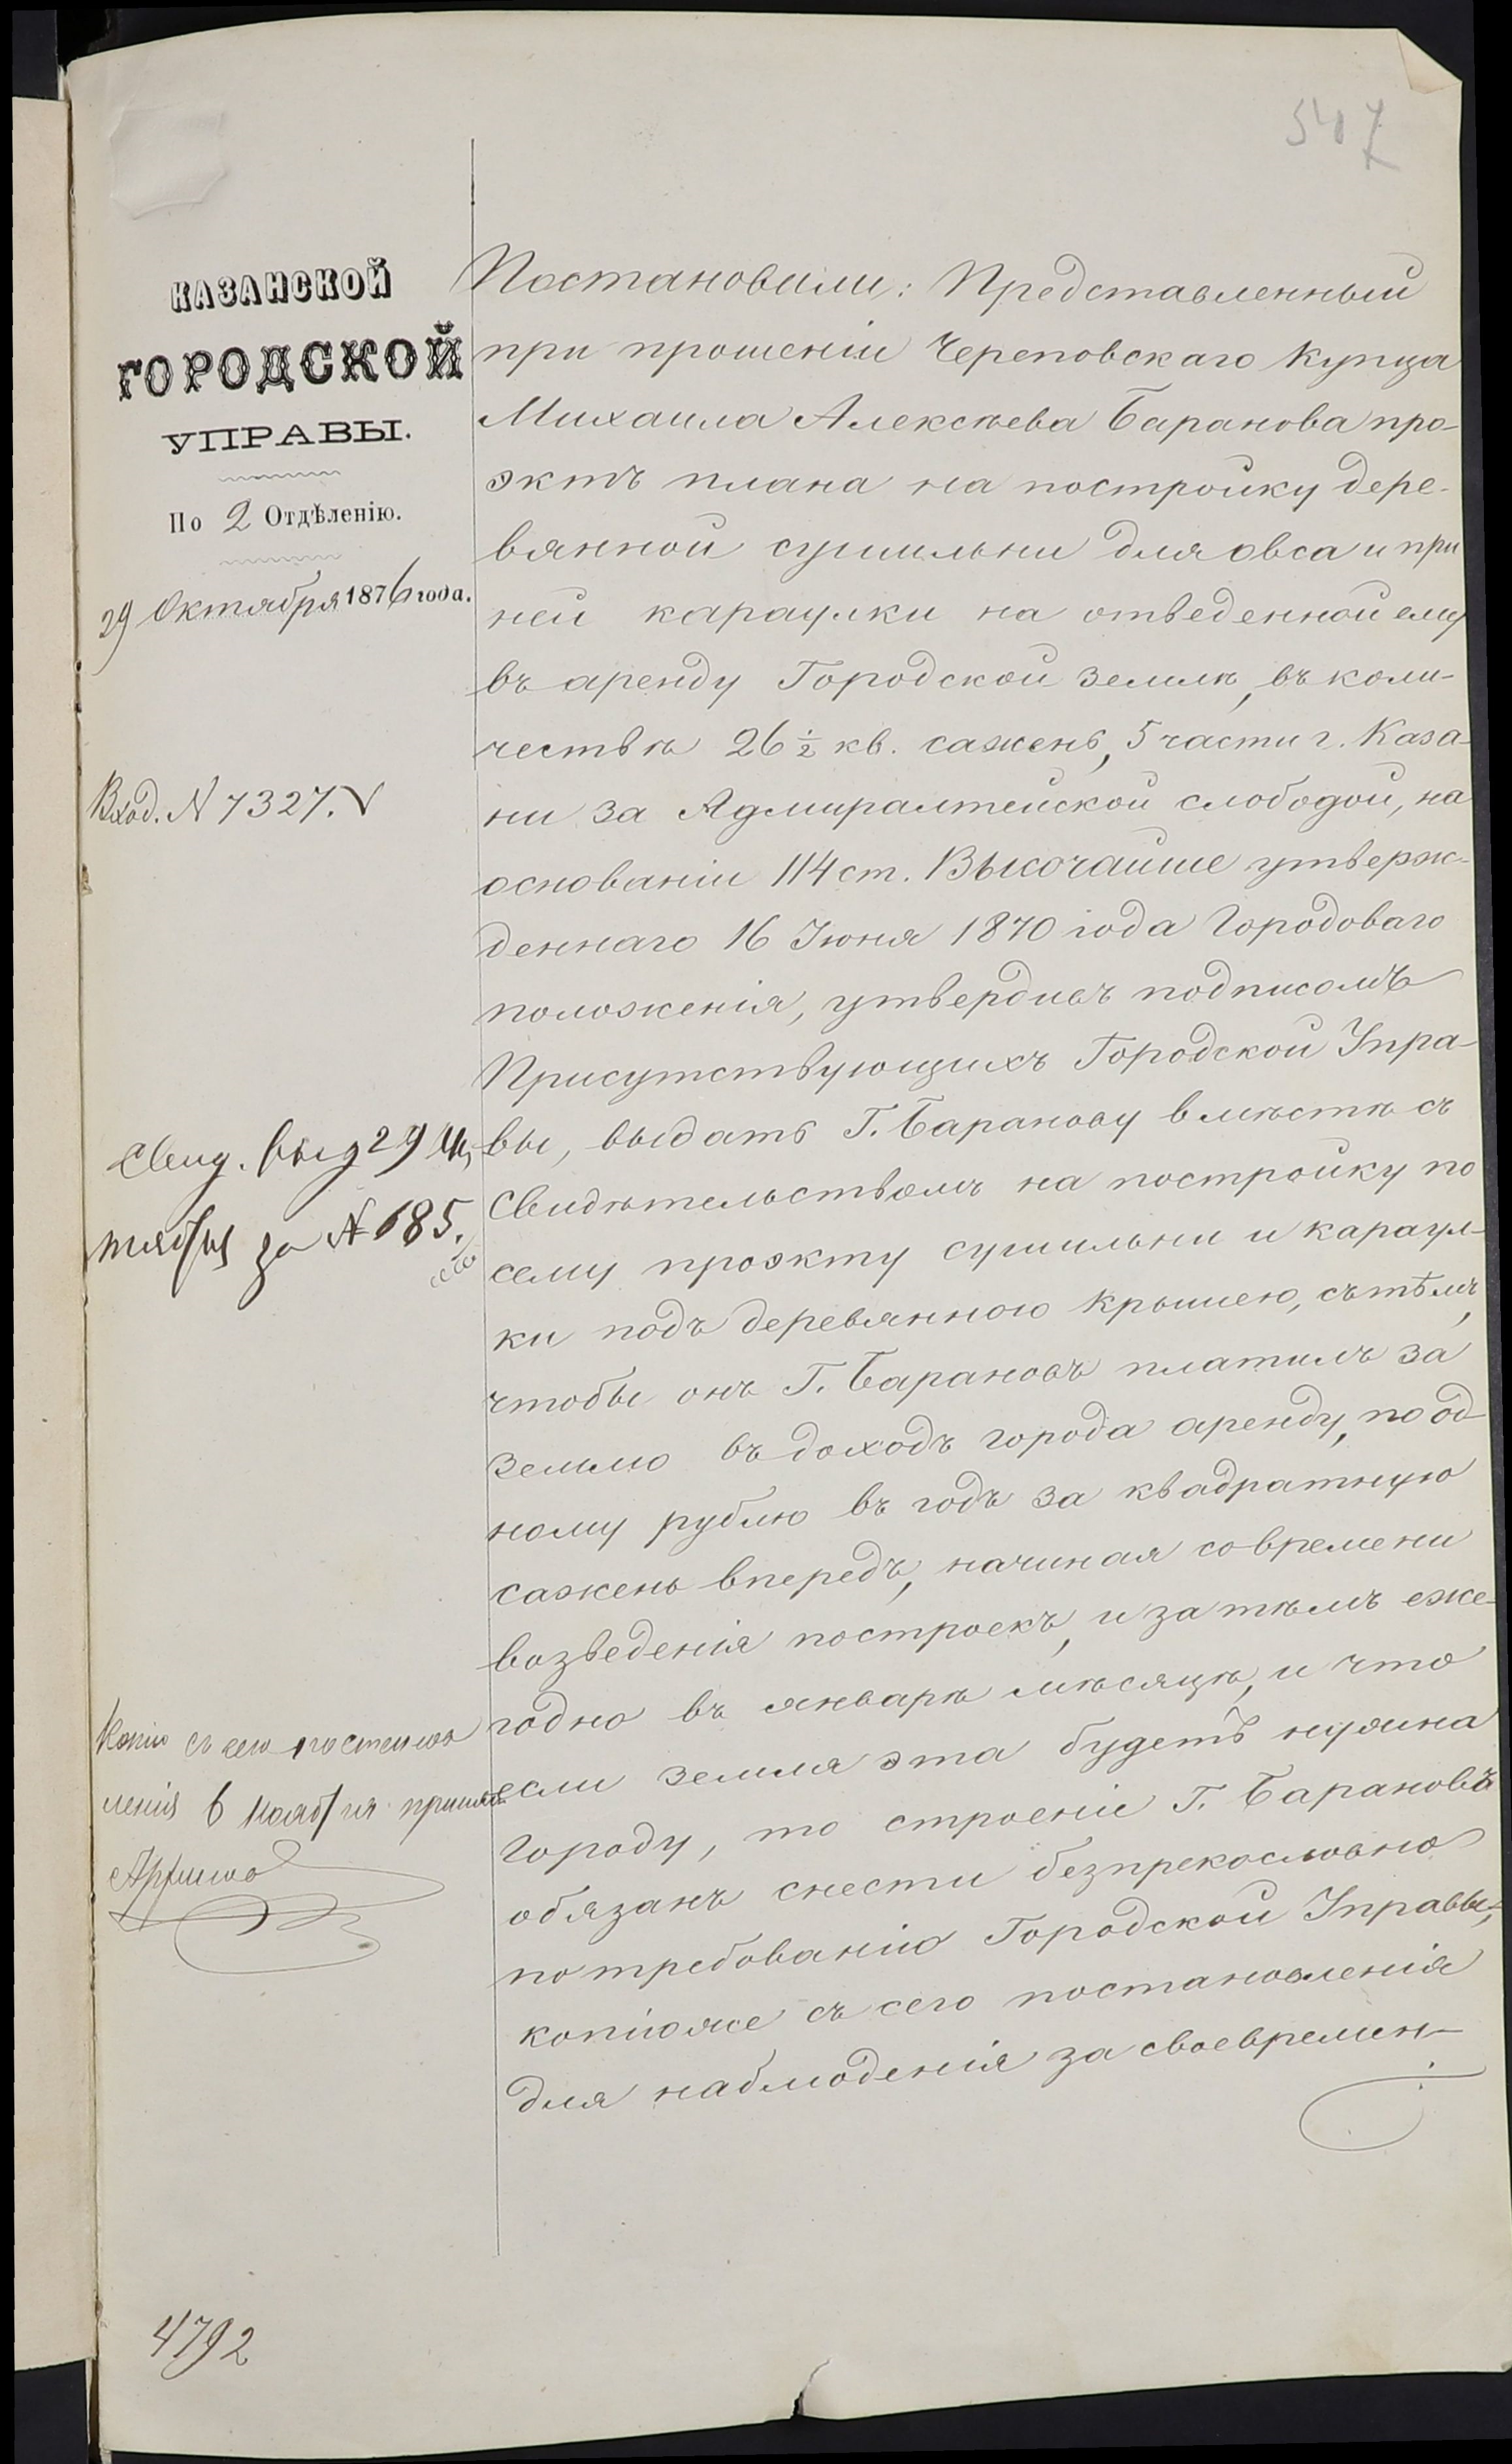 547
КАЗАНСКОЙ
ГОРОДСКОЙ
УПРАВЫ.
По 2 Отдѣленію.
29 Октября 1876 года.
Вход. N 7327. V
Свид. выд 29 Ок
тября за N 685.
Копію съ сего постанов
ленія 6 Ноября принялъ
4792
Постановили: Представленный
при прошеніи Череповскаго Купца
Михаила Алексѣева Баранова про-
эктъ плана на постройку дере-
вянной сушильни для овса и при
ней караулки на отведенной ему
въ аренду Городской землѣ, въ коли-
чествѣ 26 ½ кв. сажень, 5 части г. Каза-
ни за Адмиралтейской слободой, на
основаніи 114 ст. Высочайше утверж-
деннаго 16 Іюня 1870 года Городоваго
положенія, утвердивъ подписомъ
Присутствующихъ Городской Упра-
вы, выдать Г. Баранову вмѣстѣ съ
Свидѣтельствомъ на постройку по
сему проэкту сушильни и караул-
ки подъ деревянною крышею, съ тѣмъ,
чтобы онъ Г. Барановъ платилъ за
землю въ доходъ города аренду, по од-
ному рублю въ годъ за квадратную
сажень впередъ, начиная со времени
возведенія построекъ, и за тѣмъ еже-
годно въ январѣ мѣсяцѣ, и что
если земля эта будетъ нужна
городу, то строеніе Г. Барановъ
обязанъ снести безпрекословно
по требованію Городской Управы,
копію же съ сего постановленія
для наблюденія за своевремен-